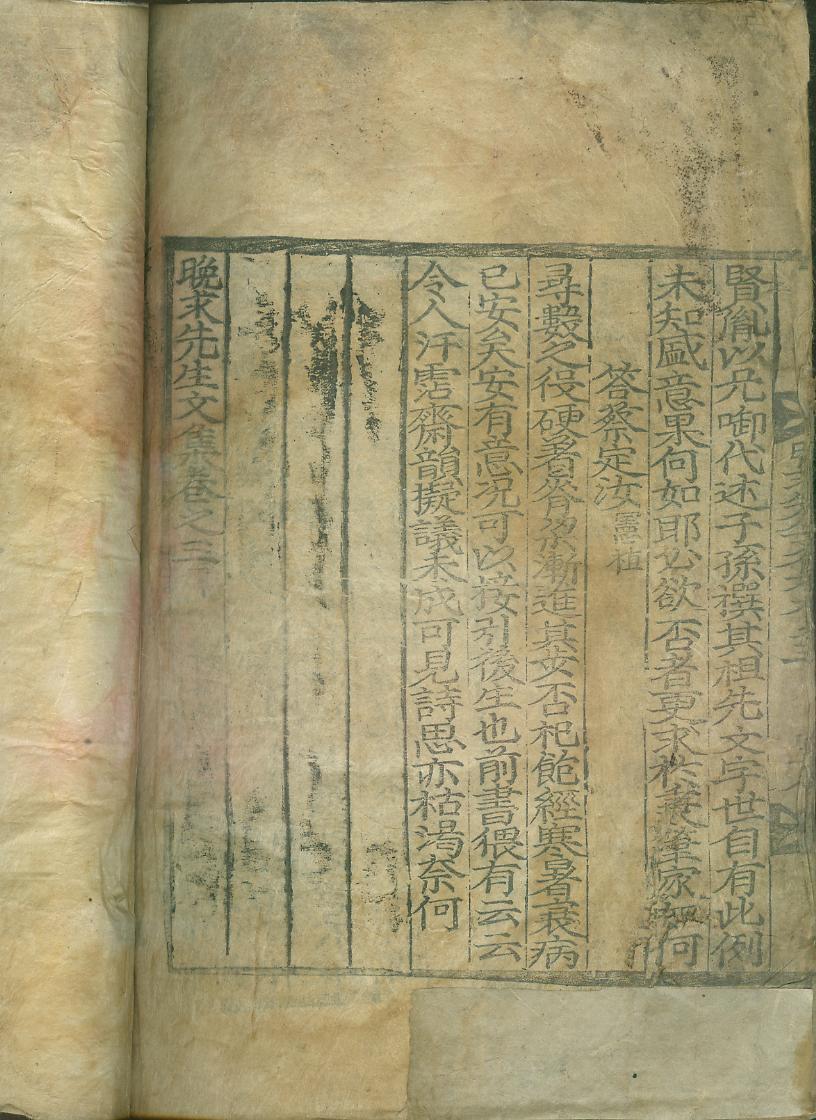 賢胤以兄啣代述子孫撰其祖先文字世自有此例
未知盛意果何如耶必欲否者更求於秉筆家如何
答蔡定汝憲植
尋數之役硬着脊梁漸進其安否杞飽經寒暑衰病
已安公矣安有意況可以接引後生也前書猥有云云
令人汗霑齋韻擬議未成可見詩思亦枯渴奈何
晩求先生文集卷之三